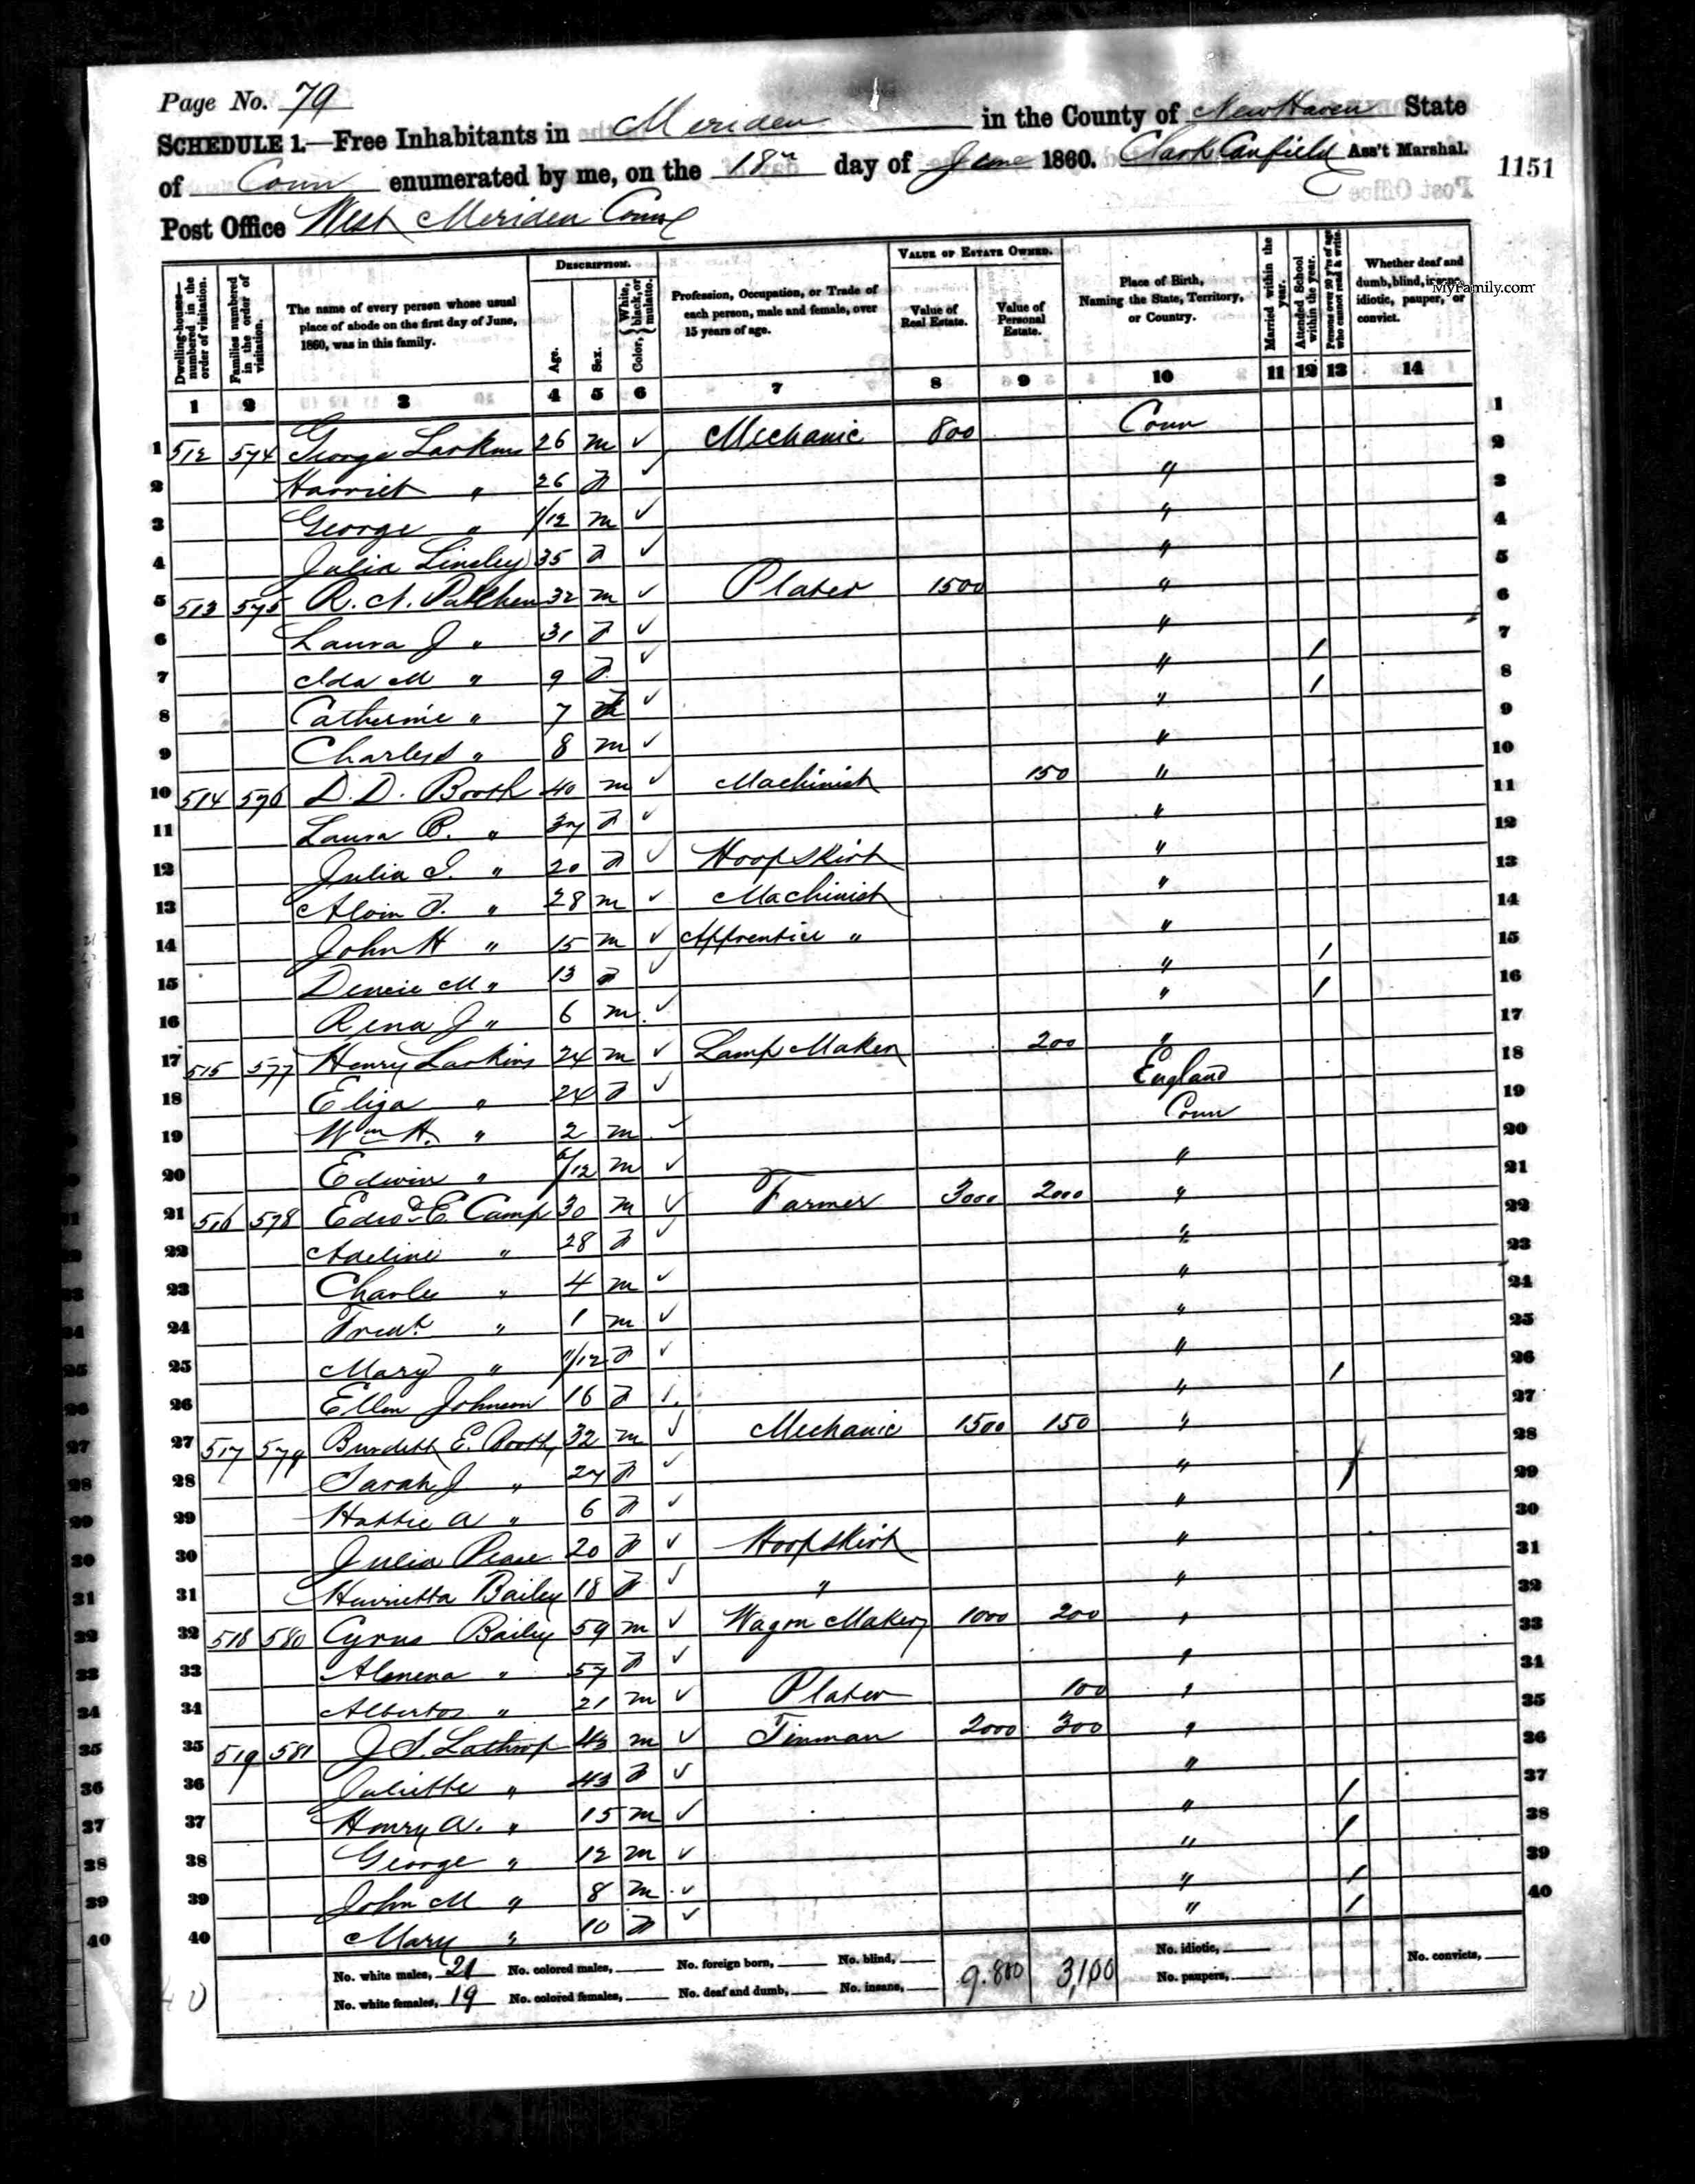 Page No. 79
SCHEDULE 1.—Free Inhabitants in Meriden in the County of New Haven State
of Conn enumerated by me, on the 18th day of June 1860. Clark Canfield Ass't Marshal.
1151
Post Office West Meriden Conn
Dwelling-houses—numbered in the order of visitation.
Families numbered in the order of visitation.
The name of every person whose usual place of abode on the first day of June, 1860, was in this family.
DESCRIPTION.
Age.
Sex.
Color, { White, black, or mulatto.
Profession, Occupation, or Trade of each person, male and female, over 15 years of age.
VALUE OF ESTATE OWNED.
Value of Real Estate.
Value of Personal Estate.
Place of Birth, Naming the State, Territory, or Country.
Married within the year.
Attended School within the year.
Persons over 20 y'rs of age who cannot read & write.
Whether deaf and dumb, blind, insane, idiotic, pauper, or convict.
MyFamily.com
1 2 3 4 5 6 7 8 9 10 11 12 13 14
1 512 574 George Larkins 26 m ✓ Mechanic 800 Conn 1
2 Harriet " 26 F ✓ " 2
3 George " 1/12 m ✓ " 3
4 Julia Linsley 35 F ✓ " 4
5 513 575 R. A. Patchen 32 m ✓ Plater 1500 " 5
6 Laura J " 31 F ✓ " 6
7 Ida M " 9 F ✓ " / 7
8 Catherine " 7 F ✓ " / 8
9 Charles " 8 m ✓ " 9
10 514 576 D. D. Booth 40 m ✓ Machinist 150 " 10
11 Laura " 37 F ✓ " 11
12 Julia S. " 20 F ✓ Hoop Skirt " 12
13 Alvin " 28 m ✓ Machinist " 13
14 John H " 15 m ✓ Apprentice " " 14
15 M " 13 F ✓ " / 15
16 Rena J " 6 m ✓ " / 16
17 515 577 Henry Larkins 24 m ✓ Lamp Maker 200 " 17
18 Eliza " 24 F ✓ England 18
19 Wm H. " 2 m ✓ Conn 19
20 Edwin " 6/12 m ✓ " 20
21 516 578 Edwd E Camp 30 m ✓ Farmer 3000 2000 " 21
22 Adeline " 28 F ✓ " 22
23 Charles " 4 m ✓ " 23
24 " 1 m ✓ " 24
25 Mary " 11/12 F ✓ " 25
26 Ellen Johnson 16 F ✓ " / 26
27 517 579 Burdett E. Booth 32 m ✓ Mechanic 1500 150 " 27
28 Sarah J " 27 F ✓ " 28
29 Hattie A " 6 F ✓ " / 29
30 Julia Pease 20 F ✓ Hoop skirt " 30
31 Henrietta Bailey 18 F ✓ " " 31
32 518 580 Cyrus Bailey 59 m ✓ Wagon Maker 1000 200 " 32
33 Almena " 57 F ✓ " 33
34 Albertos " 21 m ✓ Plater 100 " 34
35 519 581 J S. Lathrop 43 m ✓ Tinman 2000 300 " 35
36 Juliette " 43 F ✓ " 36
37 Henry A. " 15 m ✓ " / 37
38 George " 12 m ✓ " / 38
39 John M " 8 m ✓ " / 39
40 Mary " 10 F ✓ " / 40
No. white males, 21 No. colored males, No. foreign born, No. blind, 9.800 3,100 No. idiotic, No. convicts,
No. white females, 19 No. colored females, No. deaf and dumb, No. insane, No. paupers,